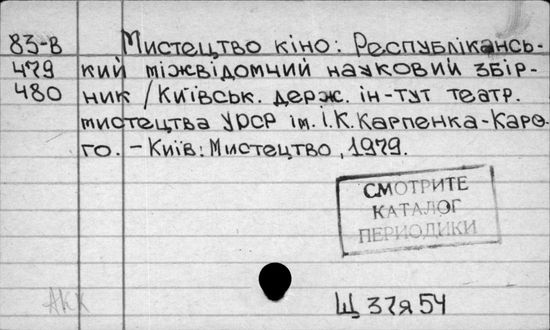 83-В Мистецтво кіно: Республікансь-
479 кий міжвідомчий науковий збір-
480 ник / Київськ. держ. ін-тут театр.
мистецтва УРСР ім. І. К. Карпенка-Каро-
го. – Київ: Мистецтво, 1979.
СМОТРИТЕ
КАТАЛОГ
ПЕРИОДИКИ
АКК
Щ 37я54